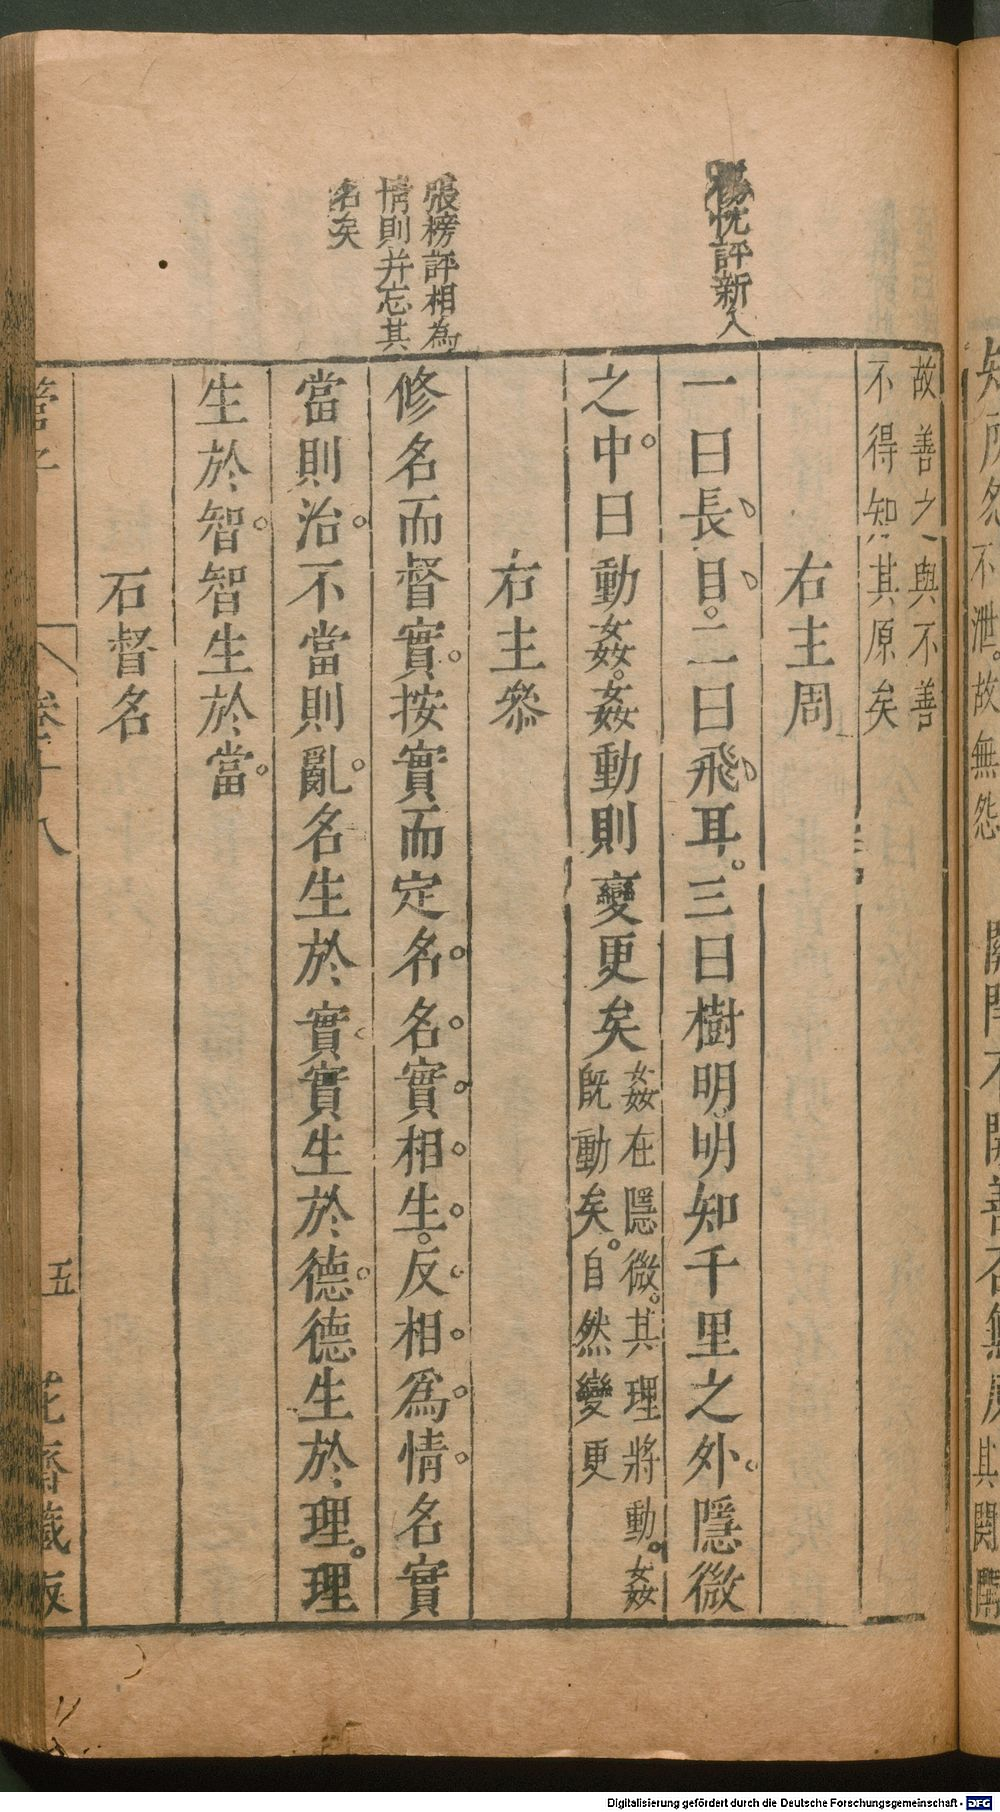 知所怨不泄。故無怨
其關閉
故善之與不善
不得知其原矣
右主周
一曰長目。二曰飛耳。三曰樹明。明知千里之外。隱微
之中。曰動姦。姦動則變更矣
姦在隱微。其理將動。姦
既動矣。自然變更
右主參
修名而督實。按實而定名。名實相生。反相爲情。名實
當則治。不當則亂。名生於實。實生於德。德生於理。理
生於智。智生於當。
右督名
評新入
張榜評相為
情則并忘其
名矣
管子
卷十八
五
花齋藏板
Digitalisierung gefördert durch die Deutsche Forschungsgemeinschaft - DFG